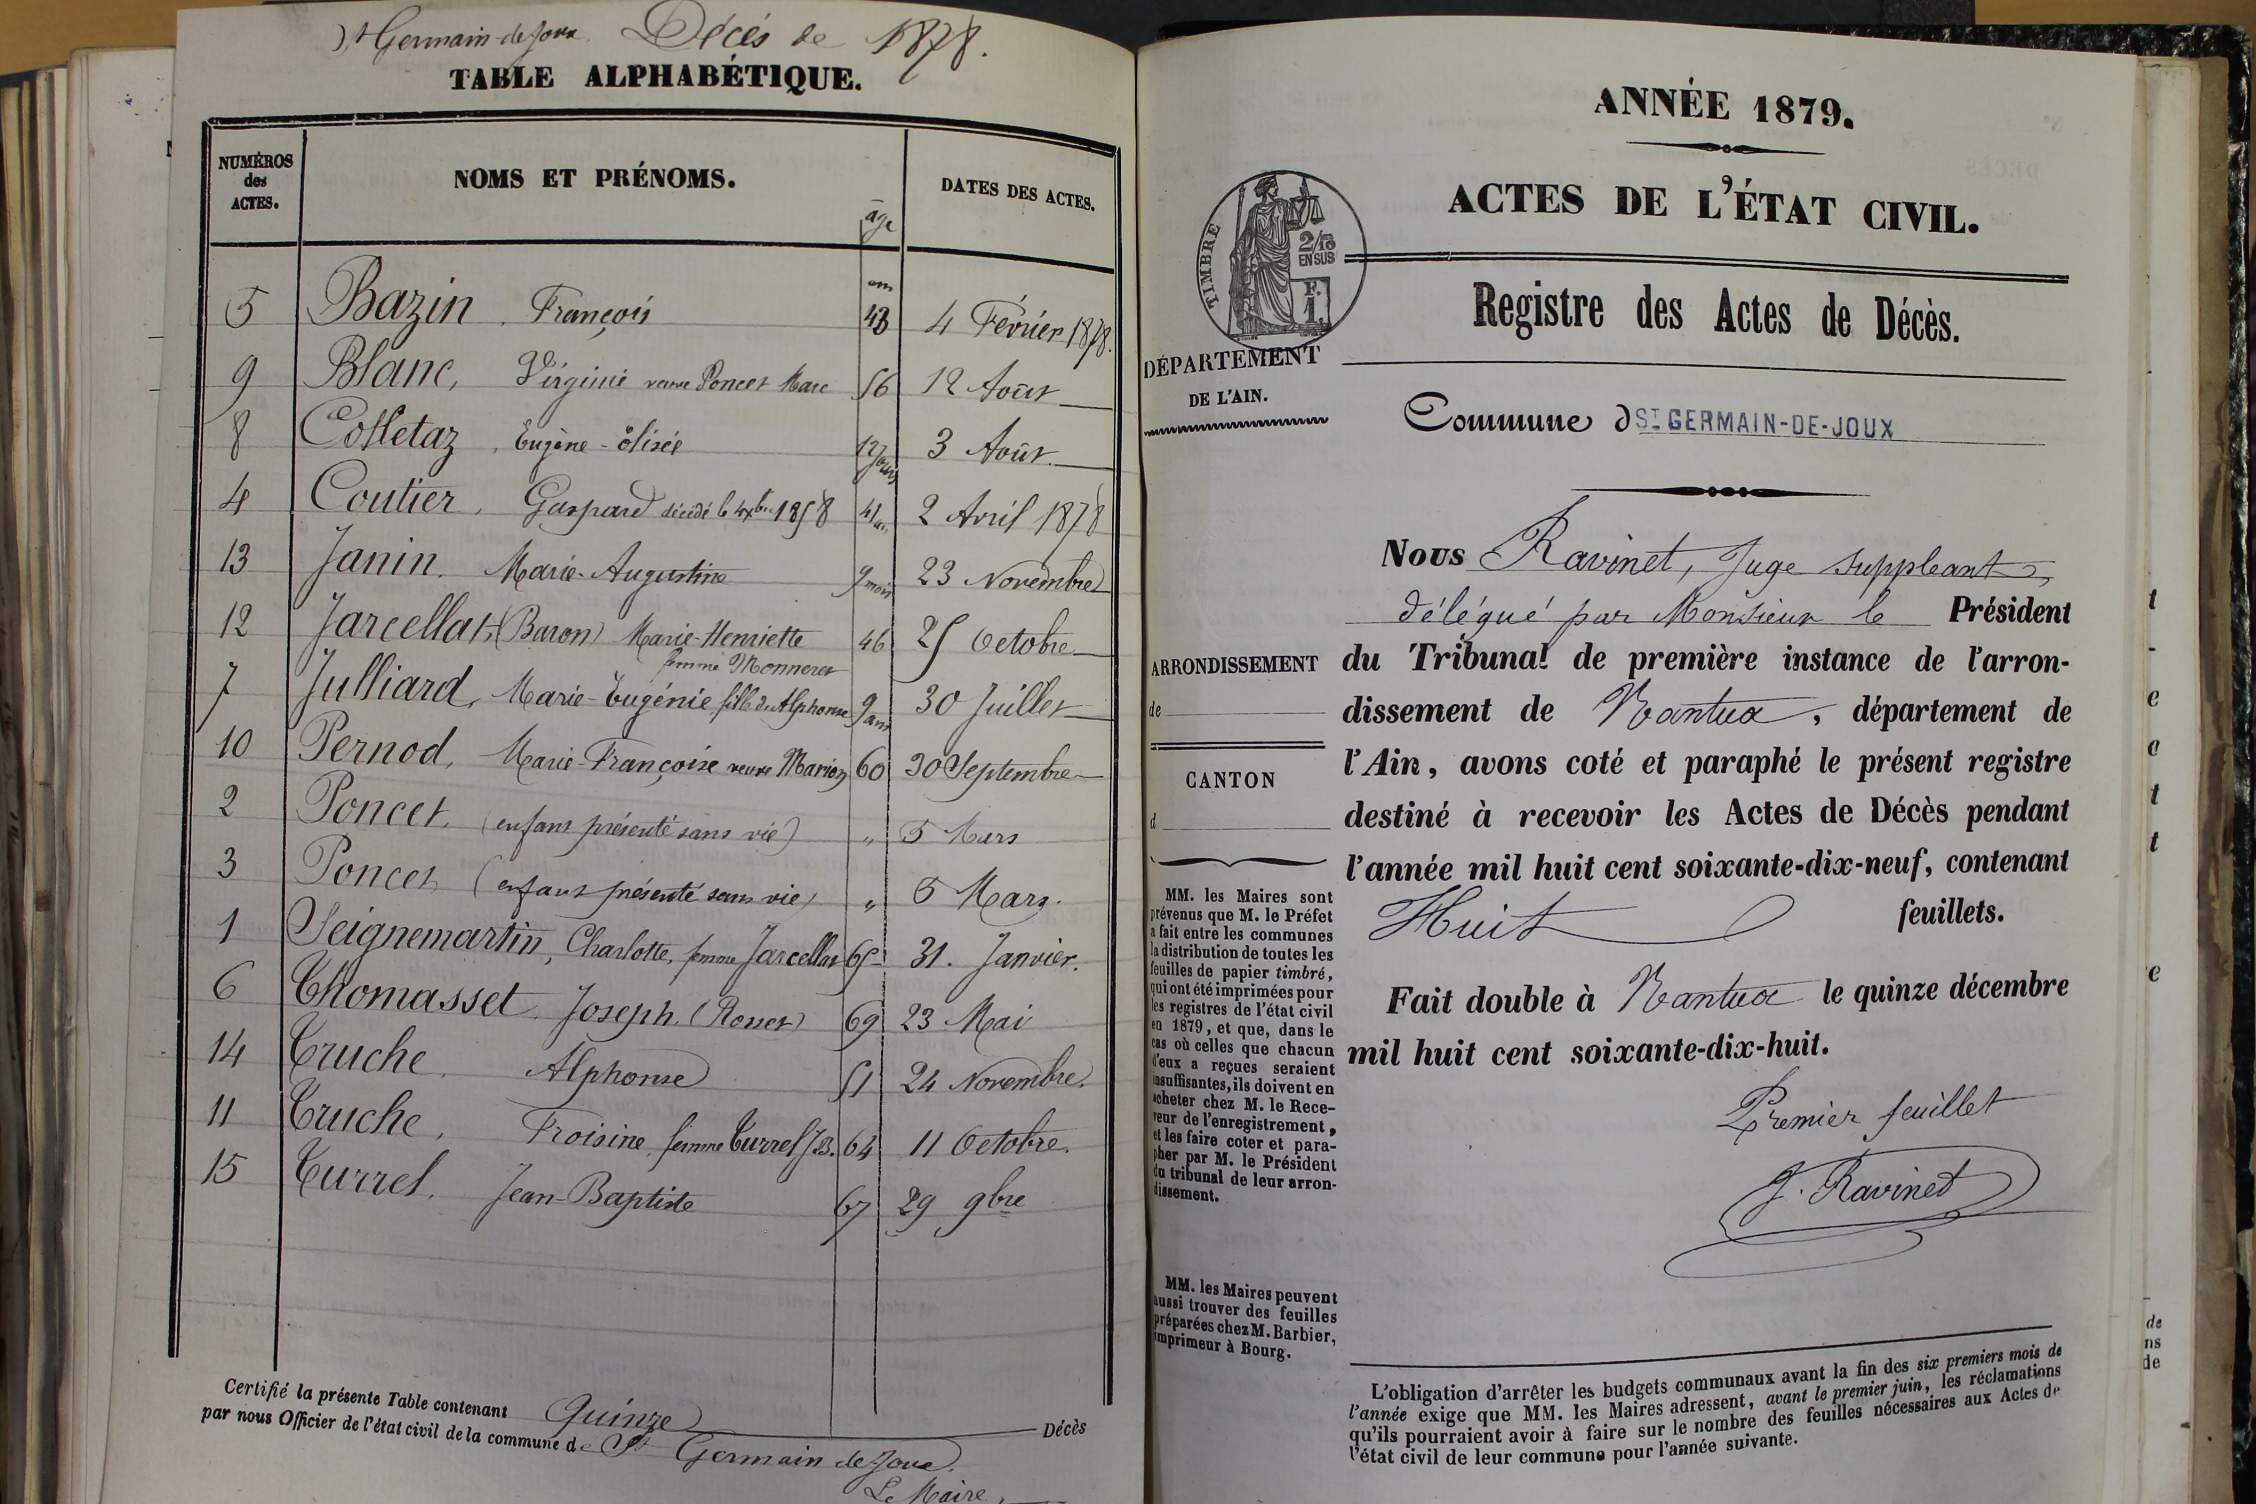 St Germain-de-Joux. Décès de 1878.
TABLE ALPHABÉTIQUE.
NUMÉROS des ACTES. NOMS ET PRÉNOMS. âge DATES DES ACTES.
ans
5 Bazin, François 43 4 Février 1878.
9 Blanc, Virginie veuve Poncet Marc 56 12 Août
8 Colletaz, Eugène-Élisée 12 jours 3 Août
4 Coutier, Gaspard décédé le 4 xbre 1858 41 ans 2 Avril 1878
13 Janin, Marie-Augustine 9 mois 23 Novembre
12 Jarcellat, (Baron) Marie-Henriette 46 25 Octobre
femme Monneret
7 Julliard, Marie-Eugénie fille de Alphonse 9 ans 30 Juillet
10 Pernod, Marie-Françoise veuve Marion 60 30 Septembre
2 Poncet, (enfant présenté sans vie) " 5 Mars
3 Poncet, (enfant présenté sans vie) " 5 Mars.
1 Seignemartin, Charlotte, femme Jarcellat 65 31. Janvier.
6 Thomasset, Joseph. (Rosset) 69 23 Mai
14 Truche, Alphonse 51 24 Novembre.
11 Truche, Froisine, femme Turrel J.B. 64 11 Octobre.
15 Turrel, Jean-Baptiste 67 29 9bre
Certifié la présente Table contenant Quinze Décès
par nous Officier de l'état civil de la commune de St Germain de Joux.
Le Maire,
ANNÉE 1879.
ACTES DE L'ÉTAT CIVIL.
TIMBRE
2/10
EN SUS
F.
1.
Registre des Actes de Décès.
DÉPARTEMENT
DE L'AIN.
Commune d ST GERMAIN-DE-JOUX
Nous Ravinet, Juge suppleant,
délégué par Monsieur le Président
du Tribunal de première instance de l'arron-
dissement de Nantua, département de
l'Ain, avons coté et paraphé le présent registre
destiné à recevoir les Actes de Décès pendant
l'année mil huit cent soixante-dix-neuf, contenant
Huit feuillets.
Fait double à Nantua le quinze décembre
mil huit cent soixante-dix-huit.
Premier feuillet
J. Ravinet
ARRONDISSEMENT
de
CANTON
d
MM. les Maires sont
prévenus que M. le Préfet
a fait entre les communes
la distribution de toutes les
feuilles de papier timbré,
qui ont été imprimées pour
les registres de l'état civil
en 1879, et que, dans le
cas où celles que chacun
d'eux a reçues seraient
insuffisantes, ils doivent en
acheter chez M. le Rece-
veur de l'enregistrement,
et les faire coter et para-
pher par M. le Président
du tribunal de leur arron-
dissement.
MM. les Maires peuvent
aussi trouver des feuilles
préparées chez M. Barbier,
imprimeur à Bourg.
L'obligation d'arrêter les budgets communaux avant la fin des six premiers mois de
l'année exige que MM. les Maires adressent, avant le premier juin, les réclamations
qu'ils pourraient avoir à faire sur le nombre des feuilles nécessaires aux Actes de
l'état civil de leur commune pour l'année suivante.